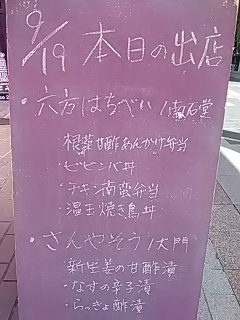 9/19 本日の出店
・六方はちべい/懐石堂
・根菜甘酢あんかけ弁当
・ビビンバ丼
・チキン南蛮弁当
・温玉焼き鳥丼
・さんやそう/大門
・新生姜の甘酢漬
・なすの辛子漬
・らっきょ酢漬